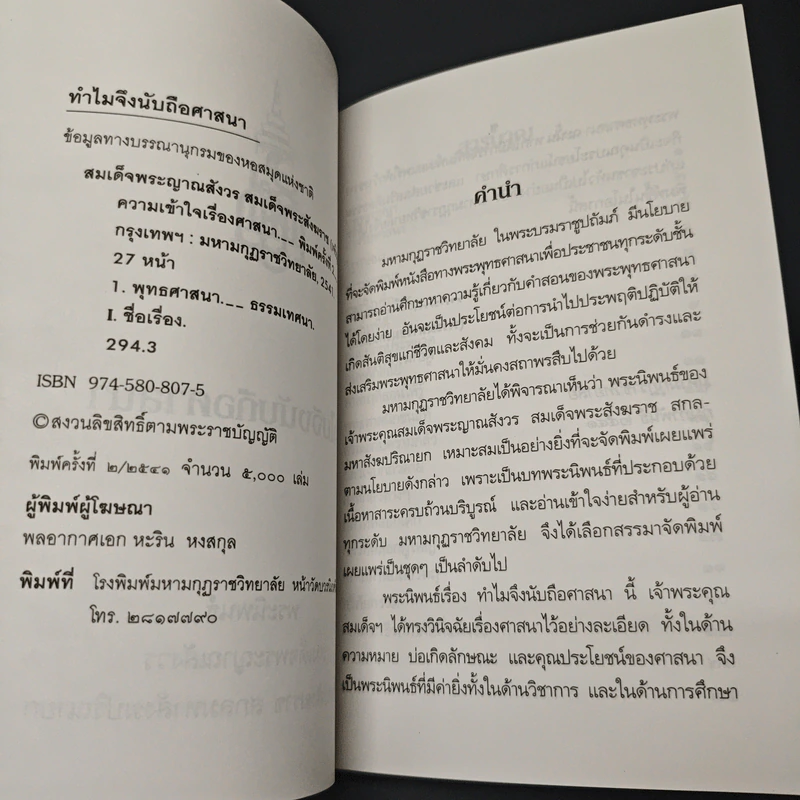 ทำไมจึงนับถือศาสนา
ข้อมูลทางบรรณานุกรมของหอสมุดแห่งชาติ
สมเด็จพระญาณสังวร สมเด็จพระสังฆราช
ความเข้าใจเรื่องศาสนา.__ พิมพ์ครั้งที่
กรุงเทพฯ : มหามกุฏราชวิทยาลัย, 2541
27 หน้า
1. พุทธศาสนา.__ ธรรมเทศนา.
I. ชื่อเรื่อง.
294.3
ISBN 974-580-807-5
©สงวนลิขสิทธิ์ตามพระราชบัญญัติ
พิมพ์ครั้งที่ ๒/๒๕๔๑ จำนวน ๕,๐๐๐ เล่ม
ผู้พิมพ์ผู้โฆษณา
พลอากาศเอก หะริน หงสกุล
พิมพ์ที่ โรงพิมพ์มหามกุฏราชวิทยาลัย หน้าวัดบวรนิเวศ
โทร. ๒๘๑๗๗๙๐
คำนำ
มหามกุฏราชวิทยาลัย ในพระบรมราชูปถัมภ์ มีนโยบาย
ที่จะจัดพิมพ์หนังสือทางพระพุทธศาสนาเพื่อประชาชนทุกระดับชั้น
สามารถอ่านศึกษาหาความรู้เกี่ยวกับคำสอนของพระพุทธศาสนา
ได้โดยง่าย อันจะเป็นประโยชน์ต่อการนำไปประพฤติปฏิบัติให้
เกิดสันติสุขแก่ชีวิตและสังคม ทั้งจะเป็นการช่วยกันดำรงและ
ส่งเสริมพระพุทธศาสนาให้มั่นคงสถาพรสืบไปด้วย
มหามกุฏราชวิทยาลัยได้พิจารณาเห็นว่า พระนิพนธ์ของ
เจ้าพระคุณสมเด็จพระญาณสังวร สมเด็จพระสังฆราช สกล-
มหาสังฆปริณายก เหมาะสมเป็นอย่างยิ่งที่จะจัดพิมพ์เผยแพร่
ตามนโยบายดังกล่าว เพราะเป็นบทพระนิพนธ์ที่ประกอบด้วย
เนื้อหาสาระครบถ้วนบริบูรณ์ และอ่านเข้าใจง่ายสำหรับผู้อ่าน
ทุกระดับ มหามกุฏราชวิทยาลัย จึงได้เลือกสรรมาจัดพิมพ์
เผยแพร่เป็นชุดๆ เป็นลำดับไป
พระนิพนธ์เรื่อง ทำไมจึงนับถือศาสนา นี้ เจ้าพระคุณ
สมเด็จฯ ได้ทรงวินิจฉัยเรื่องศาสนาไว้อย่างละเอียด ทั้งในด้าน
ความหมาย บ่อเกิดลักษณะ และคุณประโยชน์ของศาสนา จึง
เป็นพระนิพนธ์ที่มีค่ายิ่งทั้งในด้านวิชาการ และในด้านการศึกษา